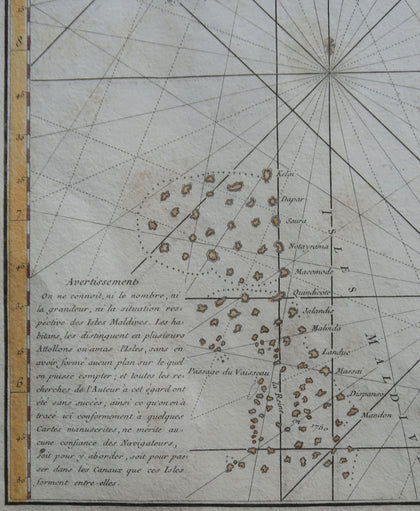 8
Kelai
Dapar
Saura
7
Notayrama
Macomode
Quindicote
Avertissement
On ne connoit, ni le nombre, ni
la grandeur, ni la situation res-
pective des Isles Maldives. Ses ha-
bitans les distinguent en plusieurs
Attollons ou amas d'Isles, sans en
avoir formé aucun plan sur le quel
on puisse compter; et toutes les re-
cherches de l'Auteur à cet égard ont
été sans succès; ainsi ce qu'on en a
tracé ici conformement à quelques
Cartes manuscrites, ne mérite au-
cune confiance des Navigateurs,
soit pour y aborder, soit pour pas-
ser dans les Canaux que ces Isles
forment entre-elles.
Jalandis
Malinda
Landuc
Passage du Vaisseau
Massai
6
Dispanso
Mandon
ISLES
MALDIV